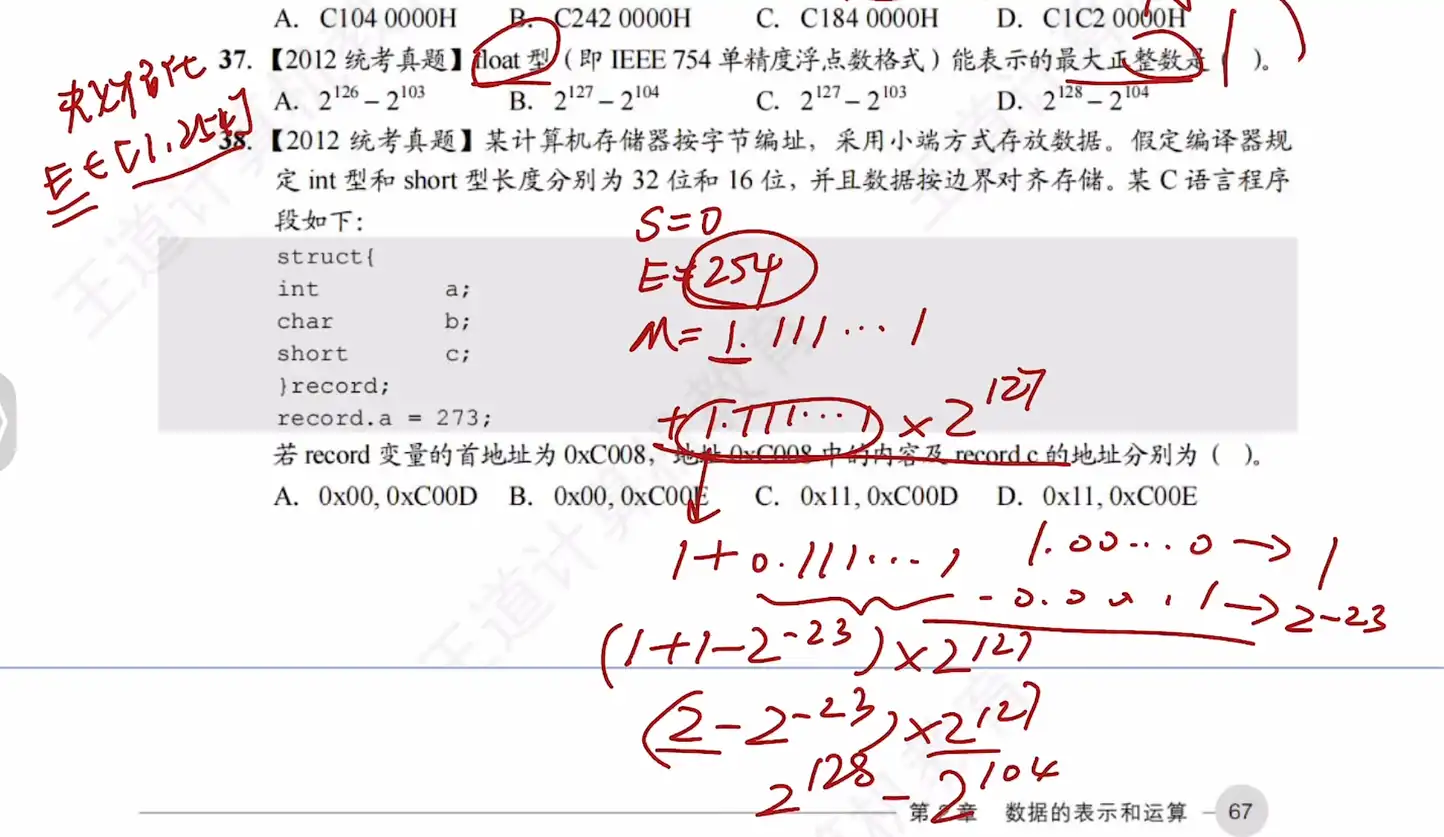 A. C104 0000H B. C242 0000H C. C184 0000H D. C1C2 0000H
37. 【2012 统考真题】float 型（即 IEEE 754 单精度浮点数格式）能表示的最大正整数是（ ）。
A. 2^126 − 2^103 B. 2^127 − 2^104 C. 2^127 − 2^103 D. 2^128 − 2^104
E∈[1,254]
38. 【2012 统考真题】某计算机存储器按字节编址，采用小端方式存放数据。假定编译器规
定 int 型和 short 型长度分别为 32 位和 16 位，并且数据按边界对齐存储。某 C 语言程序
段如下：
S=0
struct{
E=254
int a;
char b;
M=1.111…1
short c;
}record;
+1.111…1×2^127
record.a = 273;
若 record 变量的首地址为 0xC008，地址 0xC008 中的内容及 record.c 的地址分别为（ ）。
A. 0x00, 0xC00D B. 0x00, 0xC00E C. 0x11, 0xC00D D. 0x11, 0xC00E
1+0.111…1 1.00…0→1
-0.00..1→2-23
(1+1-2^-23)×2^127
(2-2^-23)×2^127
2^128-2^104
第2章 数据的表示和运算 67
王道计算机教育